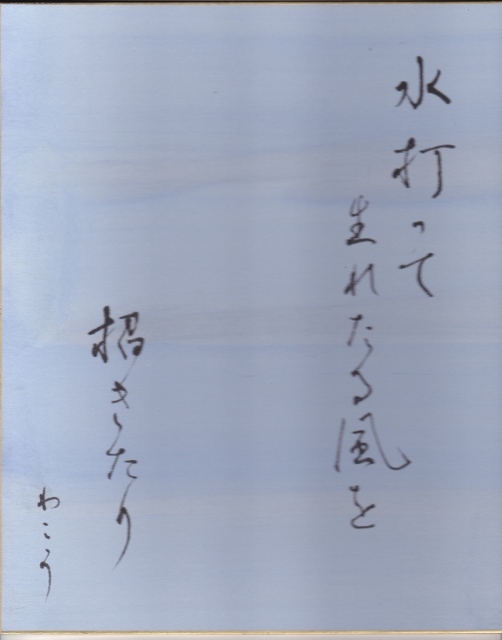 水打って
生れたる風を
招きたり
わこう